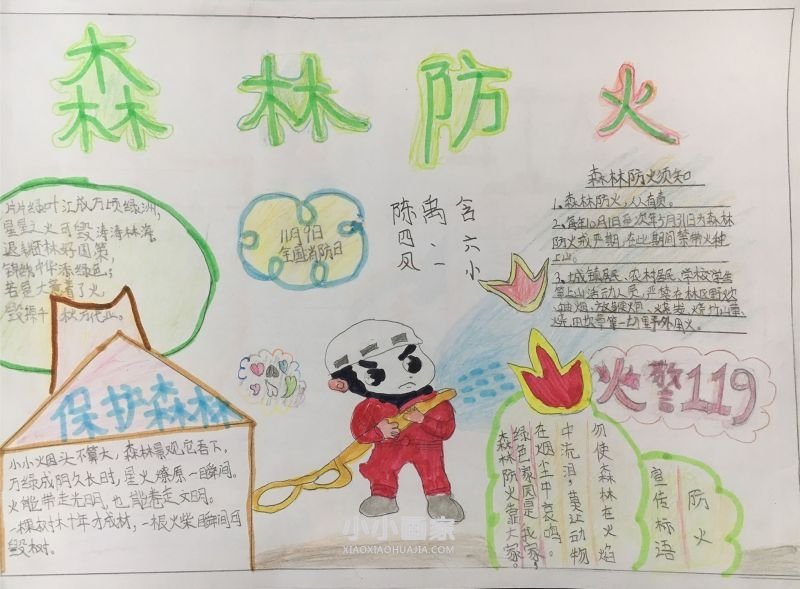 森林防火
片片绿叶汇成万顷绿洲,
星星之火可毁涛涛林海。
退耕还林好国策,
锦绣中华添绿色;
若是大意着了火,
11月9日
全国消防日
含六小
禹二
陈四凤
森林防火须知
1、森林防火,人人有责。
防火戒严期,在此期间禁带火种
上山。
3、城镇居民、农村居民、学校学生
等上山活动人员,严禁在林区野炊
保护森林
小小烟头不算大,森林景观危吾下,
万绿成阴久长时,星火燎原一瞬间。
火能带走光明,也能卷走文明。
一棵树木十年才成材,一根火柴瞬间可
毁树。
火警119
勿使森林在火焰
中流泪,莫让动物
在烟尘中哀鸣。
绿色家园是我家,
森林防火靠大家。
防火
宣传标语
小小画家
XIAOXIAOHUAJIA.COM